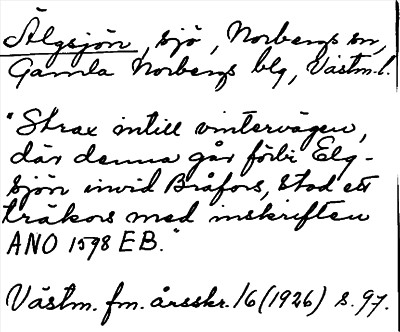 Älgsjön, sjö, Norbergs sn,
Gamla Norbergs blg, Västm.l.
"Strax intill vintervägen,
där denna går förbi Elg-
sjön invid Bråfors, stod ett
träkors med inskriften
ANO 1598 EB."
Västm. fm. årsskr. 16 (1926) s. 97.